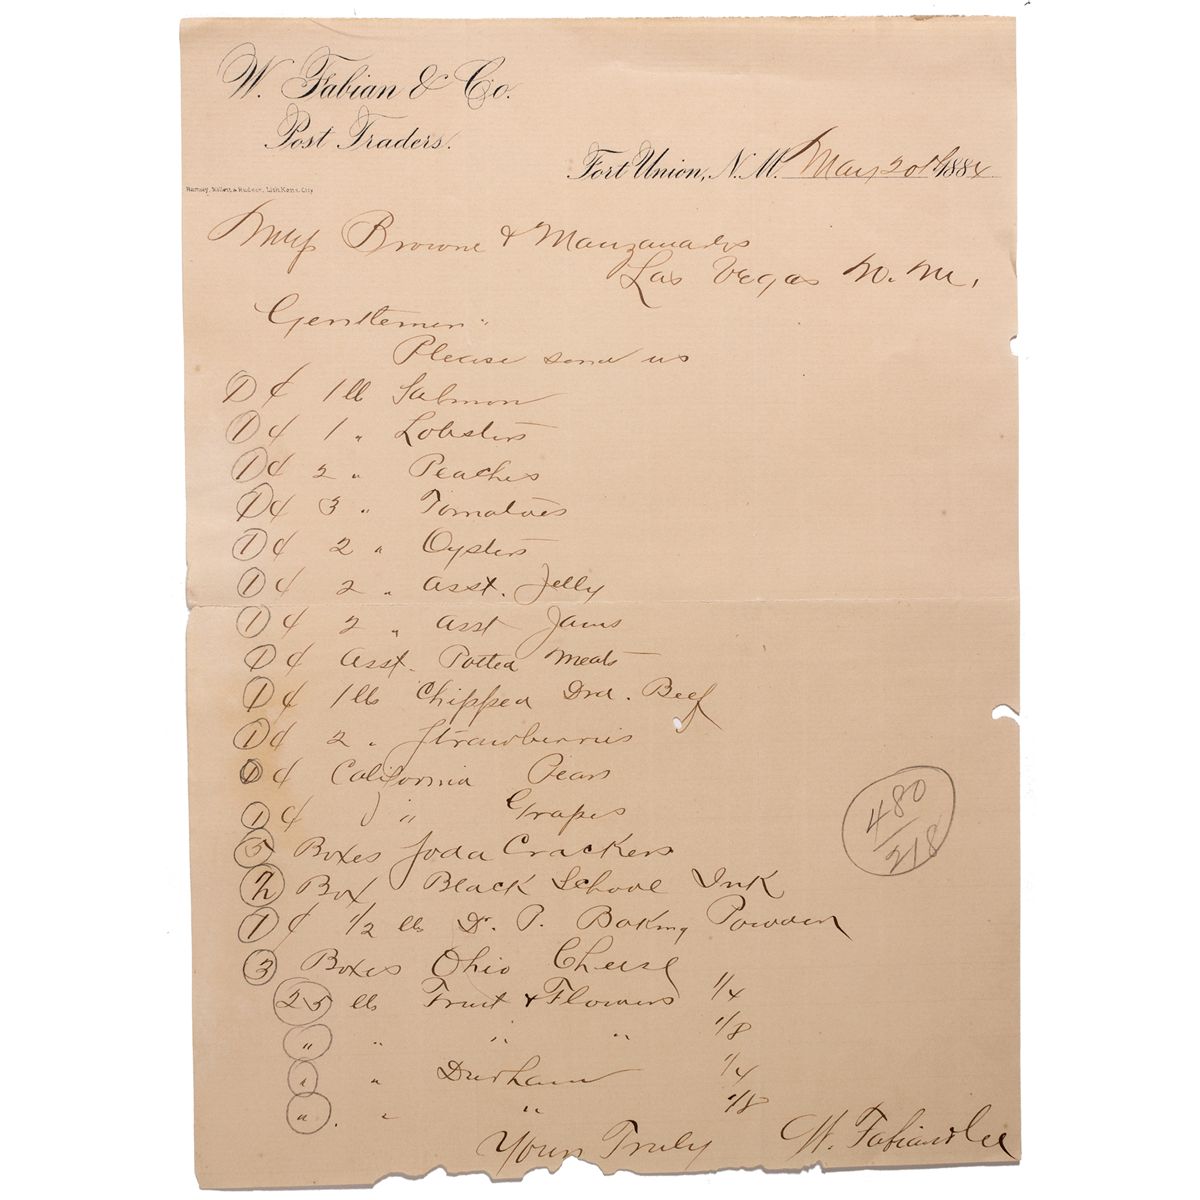 W. Fabian & Co.
Post Traders.
Fort Union, N.M. May 20th 1884
Ramsey, Millett & Hudson, Lith Kans. City
Mess Browne & Manzanares
Las Vegas N. M.
Gentlemen:
Please send us
1 ¢ 1 lb Salmon
1 ¢ 1 " Lobsters
1 ¢ 2 " Peaches
1 ¢ 3 " Tomatoes
1 ¢ 2 " Oysters
1 ¢ 2 " Asst. Jelly
1 ¢ 2 " Asst Jams
1 ¢ Asst. Potted Meats
1 ¢ 1 lb Chipped Drd. Beef
1 ¢ 2 " Strawberries
1 ¢ California Pears
1 ¢ " Grapes
5 Boxes Soda Crackers
Box Black School Ink
1 ¢ 1/2 lb Dr. P. Baking Powder
3 Boxes Ohio Cheese
25 lb Fruit & Flowers 1/4
" " " " 1/8
" " Durham 1/4
" . " " 1/8
Yours Truly W. Fabian & Co
480
218